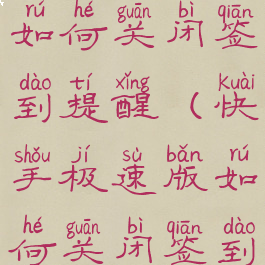 rú hé guān bì qiān
如何关闭签
dào tí xǐng kuài
到提醒（快
shǒu jí sù bǎn rú
手极速版如
hé guān bì qiān dào
何关闭签到